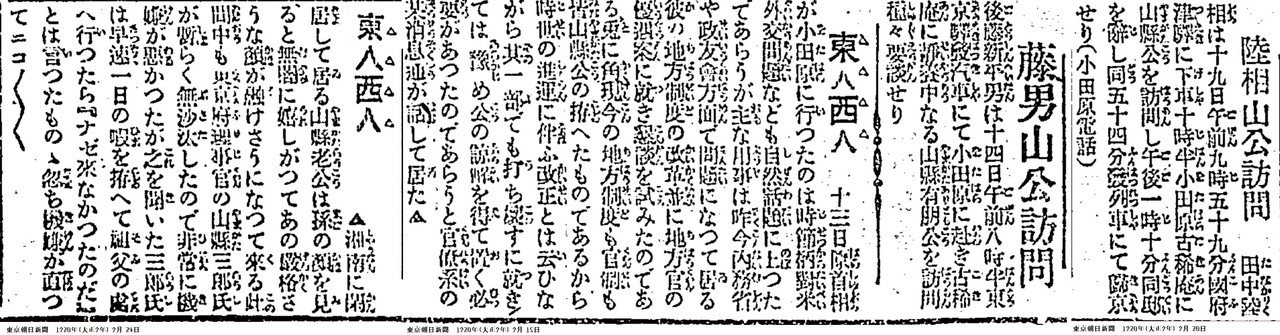 陸相山公訪問 田中陸
相は十九日午前九時五十九分國府
津驛に下車十時半小田原古稀庵に
山縣公を訪問し午後一時十分同邸
を辭し同五十四分發列車にて歸京
せり(小田原電話)
藤男山公訪問
後藤新平男は十四日午前八時半東
京驛發汽車にて小田原に赴き古稀
庵に靜養中なる山縣有朋公を訪問
種々要談せり
東人西人 十三日原首相
が小田原に行つたのは時節柄對米
外交問題なども自然話題に上つた
であらうが主な用事は昨今内務省
や政友會方面で問題になつて居る
彼の地方制度の改革並に地方官の
優遇案に就き懇談を試みたのであ
る兎に角現今の地方制度も官制も
皆山縣公の拵へたものであるから
時世の進運に伴ふ改正とは云ひな
がら其一部でも打ち壞すに就き
ては豫め公の諒解を得て置く必
要があつたのであらうと官僚系の
某消息通が話して居た△
東人西人 △湘南に閑
居して居る山縣老公は孫の顔を見
ると無闇に嬉しがつてあの嚴格さ
うな顔が融けさうになつて來る此
田中も東京府理事官の山縣三郎氏
が暫らく無沙汰したので非常に機
嫌が惡かつたが之を聞いた三郎氏
は早速一日の暇を拵へて祖父の處
へ行つたら『ナゼ來なかつたのだ』
とは言つたものゝ忽ち機嫌が直つ
てニコ〱〱
東京朝日新聞 1220年(大正2年) 2月 24日
東京朝日新聞 1220年(大正2年) 2月 15日
東京朝日新聞 1220年(大正2年) 2月 20日